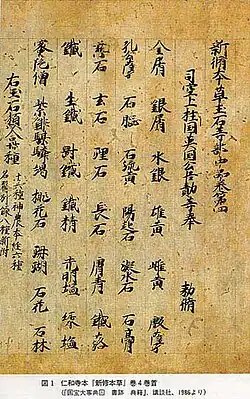 新脩本草玉石等部中品卷第四
司空上柱國英國公臣勣等奉 勑脩
金屑 銀屑 水銀 雄黃 雌黃 殷孽
孔公孽 石腦 石硫黃 陽起石 凝水石 石膏
慈石 玄石 理石 長石 膚青 鐵落
鐵 生鐵 剛鐵 鐵精 光明塩 緑塩
蜜陀僧 紫鉚騏驎竭 桃花石 珊瑚 石花 石牀
右玉石類合卅種
十六種神農本經六種
名醫別録八種新附
図1 仁和寺本『新修本草』巻4巻首
(『国宝大事典3 書跡 典籍』,講談社,1986より)